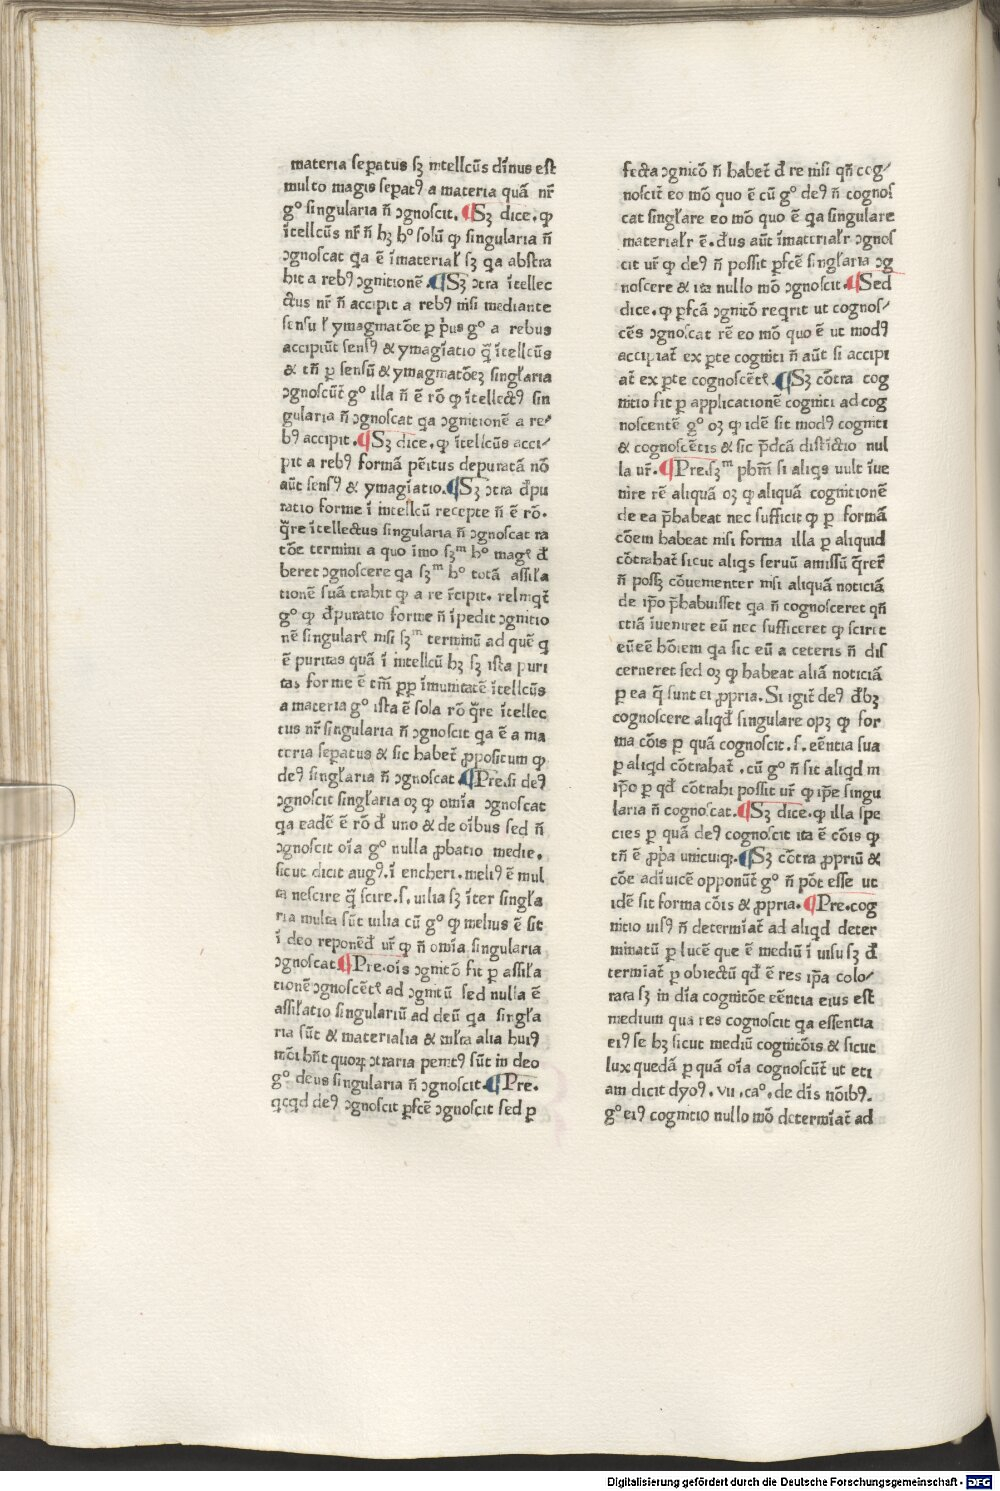 materia sep̲atus sꝫ intellcūs dīnus est
multo magis sep̲atꝰ a materia quā nr̄
g° singularia n̄ ꝯgnoscit. ¶ Sꝫ dice. ꝙ
ītellcūs nr̄ n̄ hꝫ h° solū ꝙ singularia n̄
ꝯgnoscat qa ē īmateriał sꝫ qa abstra
hit a rebꝰ ꝯgnitionē ¶ Sꝫ ꝯtra ītellec
ctus nr̄ n̄ accipit a rebꝰ nisi mediante
sensu ł ymaginatōe ꝑ pͥus g° a rebus
accipiūt sensꝰ & ymagīatio q̄ ītellcūs
& tn̄ ꝑ sensū & ymaginatōeꝫ singłaria
ꝯgnoscūt̄ g° illa n̄ ē rō ꝙ ītellectꝰ sin
gularia n̄ ꝯgnoscat qa ꝯgnitionē a re⸗
bꝰ accipit. ¶ Sꝫ dice. ꝙ ītellcūs acci⸗
pit a rebꝰ formā pēitus depuratā nō
aūt sensꝰ & ymagīatio. ¶ Sꝫ ꝯtra đpu
ratio forme ī intellcū recepte n̄ ē rō.
q̄re ītellectus singularia n̄ ꝯgnoscat ra
tōe termini a quo īmo sꝫᵐ h° magꝭ đ
beret ꝯgnoscere qa sꝫᵐ h° totā assiła
tionē suā trahit ꝙ a re r̄cipit. relinqt̄
g° ꝙ đpuratio forme n̄ īpedit ꝯgnitio
nē singularꝭ nisi sꝫᵐ terminū ad quē q
ē puritas quā ī intellcū hꝫ sꝫ ista puri
tas forme ē tm̄ ꝓpꝑ īmunitatē ītellcūs
a materia g° ista ē sola rō q̄re ītellec
tus nr̄ singularia n̄ ꝯgnoscit qa ē a ma
teria sep̲atus & sic habet̄ ꝓpositum ꝙ
deꝰ singłaria n̄ ꝯgnoscat ¶ Pre. si deꝰ
ꝯgnoscit singłaria oꝫ ꝙ omīa ꝯgnoscat
qa eadē ē rō đ uno & de oībus sed n̄
ꝯgnoscit oīa g° nulla ꝓbatio medie.
sicut dicit augꝰ. ī encheri. meliꝰ ē mul
ta nescire q̄ scire. s. uilia sꝫ īter singła
ria multa sūt uilia cū g° ꝙ melius ē sit
ī deo reponēđ ur̄ ꝙ n̄ omīa singularia
ꝯgnoscat ¶ Pre. oīs ꝯgnitō fit ꝑ assiła
tionē ꝯgnoscētꝭ ad ꝯgnitū sed nulla ē
assiłatio singulariū ad deū qa singła
ria sūt & materialia & młta alia huiꝰ
mōi hn̄t quoꝝ ꝯtraria penitꝰ sūt in deo
g° deus singularia n̄ ꝯgnoscit. ¶ Pre.
qcqd deꝰ ꝯgnoscit ꝑfcē ꝯgnoscit sed ꝑ
fecta ꝯgnitō n̄ habet̄ đ re nisi qn̄ cog⸗
noscit̄ eo mō quo ē cū g° deꝰ n̄ cognos
cat singłare eo mō quo ē qa singulare
materiałr ē. đus aūt īmateriałr ꝯgnos
cit ur̄ ꝙ deꝰ n̄ possit ꝑfcē singłaria ꝯg
noscere & ita nullo mō ꝯgnoscit. ¶ Sed
dice. ꝙ ꝑfcā ꝯgnitō reqrit ut cognos⸗
cēs ꝯgnoscat rē eo mō quo ē ut modꝰ
accipiat̄ ex ꝑte cogniti n̄ aūt si accipi
at̄ ex ꝑte cognoscētꝭ. ¶ Sꝫ cōtra cog
nitio fit ꝑ applicationē cogniti ad cog
noscentē g° oꝫ ꝙ idē sit modꝰ cogniti
& cognoscētis & sic p̄dcā distīctio nul
la ur̄. ¶ Pre. sꝫᵐ phm̄ si aliqs uult īue
nire rē aliquā oꝫ ꝙ aliquā cognitionē
de ea p̄habeat nec sufficit ꝙ ꝑ formā
cōem habeat nisi forma illa ꝑ aliquid
cōtrahat̄ sicut aliqs seruū amissū q̄rer̄
n̄ possꝫ cōuenienter nisi aliquā noticiā
de ip̄o p̄habuisset qa n̄ cognosceret qn̄
etiā īueniret eū nec sufficeret ꝙ sciret
eū eē hōiem qa sic eū a ceteris n̄ dis
cerneret sed oꝫ ꝙ habeat aliā noticiā
ꝑ ea q̄ sunt ei ꝓpria. Si igit̄ deꝰ đbꝫ
cognoscere aliqđ singulare opꝫ ꝙ for
ma cōis ꝑ quā cognoscit. s. eēntia sua
ꝑ aliqd cōtrahat̄. cū g° n̄ sit aliqd in
ip̄o ꝑ qđ cōtrahi possit ur̄ ꝙ ip̄e singu
laria n̄ cognoscat. ¶ Sꝫ dice. ꝙ illa spe
cies ꝑ quā deꝰ cognoscit ita ē cōis ꝙ
tn̄ ē ꝓpͥa unicuiqꝫ. ¶ Sꝫ cōtra ꝓpriū &
cōe adīuicē opponūt̄ g° n̄ pōt esse ut
idē sit forma cōis & ꝓpria. ¶ Pre. cog
nitio uisꝰ n̄ determīat̄ ad aliqd deter
minatū ꝑ lucē que ē mediū ī uisu sꝫ đ
termīat̄ ꝑ obiectū qđ ē res ip̄a colo⸗
rata sꝫ in dīa cognitōe eēntia eius est
medium qua res cognoscit qa essentia
eiꝰ se hꝫ sicut mediū cognitōis & sicut
lux quedā ꝑ quā oīa cognoscūt̄ ut eti
am dicit dyoꝰ. vii. ca°. de dīs nōibꝰ.
g° eiꝰ cognitio nullo mō determīat̄ ad
Digitalisierung gefördert durch die Deutsche Forschungsgemeinschaft - DFG